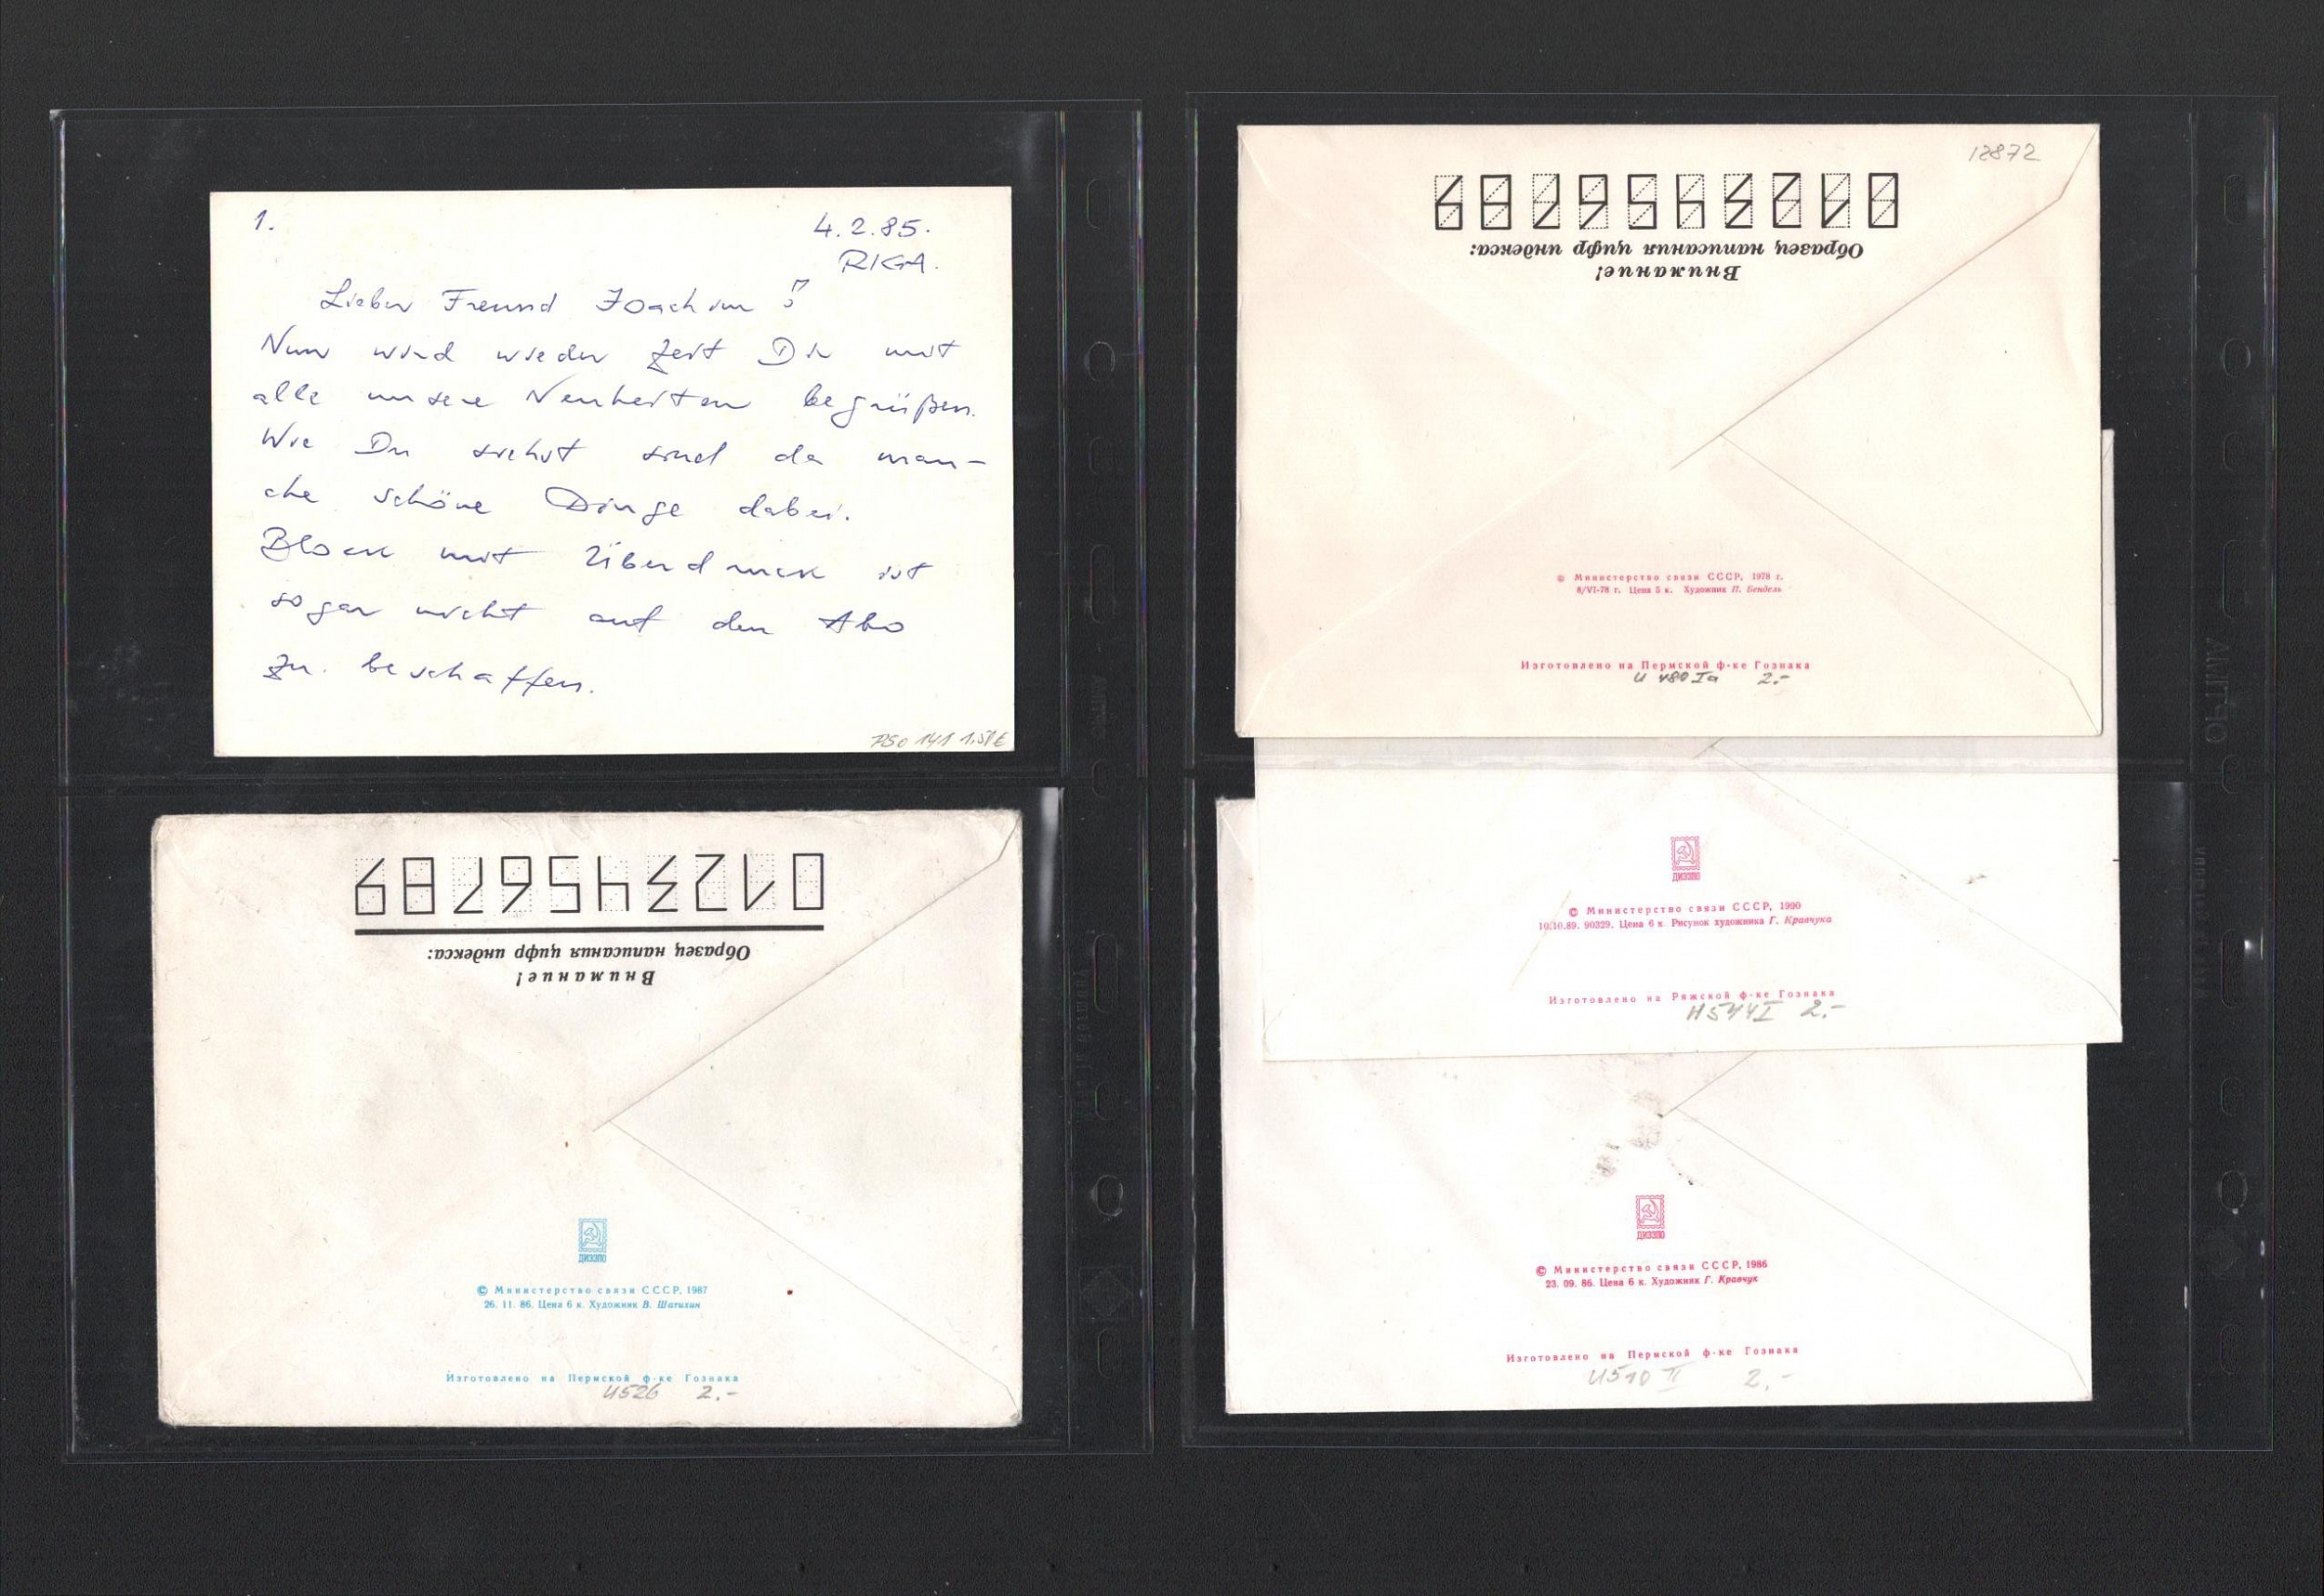 1.
4.2.85.
RIGA.
Lieber Freund Joachim!
Nun wird wieder Zeit Dir mit
alle unsere Neuheiten begrüßen.
Wie Du siehst sind da man-
che schöne Dinge dabei.
Block mit Überdruck ist
sogar nicht auf den Abo
zu. beschaffen.
PSo 141 1,50€
0123456789
Образец написания цифр индекса:
Внимание!
ДИЭЗПО
© Министерство связи СССР, 1987
26. 11. 86. Цена 6 к. Художник В. Шатихин
Изготовлено на Пермской ф-ке Гознака
U526 2.-
12872
0123456789
Образец написания цифр индекса:
Внимание!
© Министерство связи СССР, 1978 г.
8/VI-78 г. Цена 5 к. Художник П. Бендель
Изготовлено на Пермской ф-ке Гознака
U 480 Ia 2.-
ДИЭЗПО
© Министерство связи СССР, 1990
10.10.89. 90329. Цена 6 к. Рисунок художника Г. Кравчука
Изготовлено на Ряжской ф-ке Гознака
U544I 2.-
ДИЭЗПО
© Министерство связи СССР, 1986
23. 09. 86. Цена 6 к. Художник Г. Кравчук
Изготовлено на Пермской ф-ке Гознака
U510 II 2.-